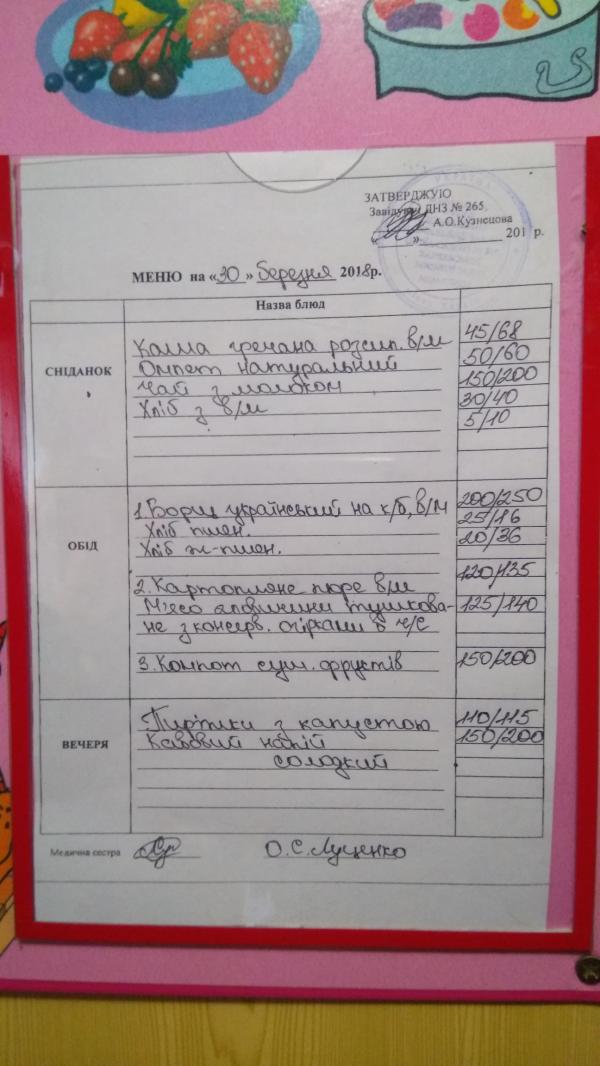 ЗАТВЕРДЖУЮ
Завідувач ДНЗ № 265
А.О.Кузнєцова
« » 201 р.
УКРАЇНА
МЕНЮ на «30» березня 2018р.
Назва блюд
СНІДАНОК
Каша гречана розсип. в/м 45/68
Омлет натуральний 50/60
Чай з молоком 150/200
Хліб з в/м 30/40
5/10
ОБІД
1. Борщ український на к/б, в/м 200/250
Хліб пшен. 25/16
Хліб ж-пшен. 20/36
2. Картопляне пюре в/м 120/135
М'ясо яловичини тушкова- 125/140
не з консерв. огірками в ч/с
3. Компот сух. фруктів 150/200
ВЕЧЕРЯ
Пиріжки з капустою 110/115
Кавовий напій 150/200
солодкий
Медична сестра О.С.Луценко